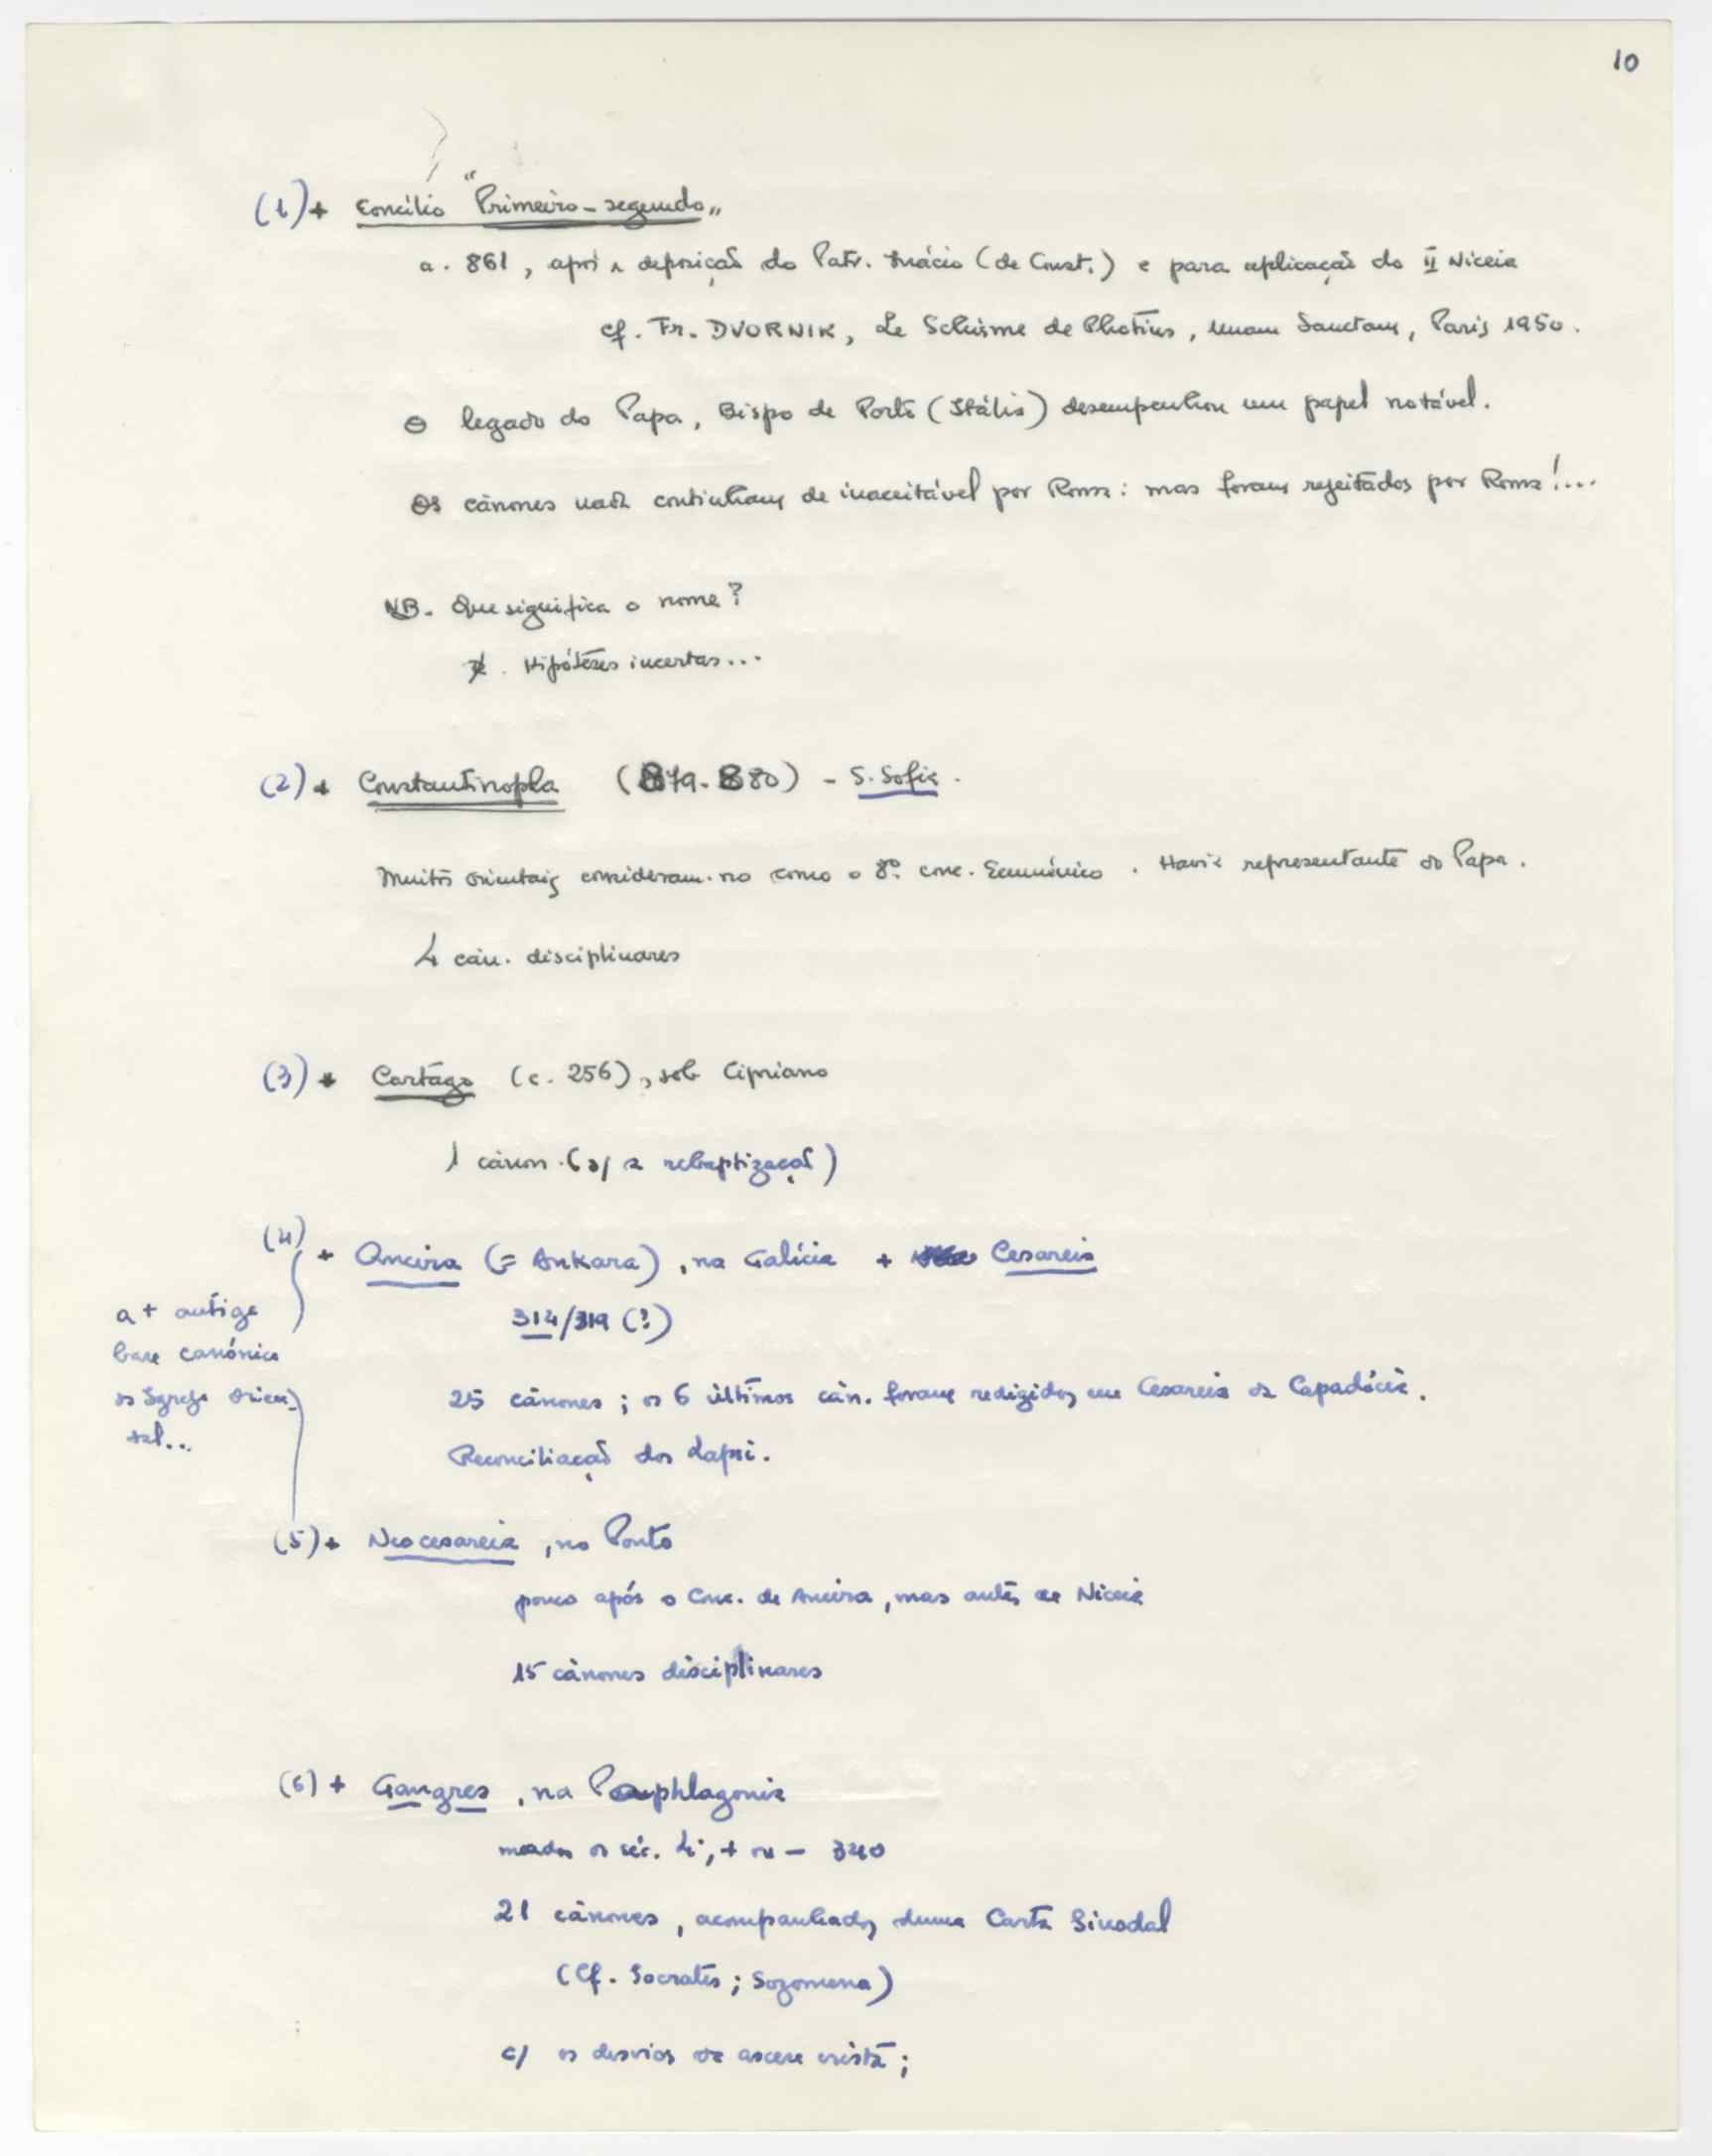 10
(1) + Concílio "Primeiro-segundo"
a. 861, após a deposição do Patr. Inácio (de Const.) e para aplicação do II Niceia
cf. Fr. DVORNIK, Le Schisme de Photius, Unam Sanctam, Paris 1950.
O legado do Papa, Bispo de Porto (Itália) desempenhou um papel notável.
Os cânones nada continham de inaceitável por Roma: mas foram rejeitados por Roma!...
NB. Que significa o nome?
. Hipóteses incertas...
(2) + Constantinopla (879-880) - S. Sofia.
Muitos orientais consideram-no como o 8º conc. Ecuménico. Havia representante do Papa.
4 cân. disciplinares
(3) + Cartago (c. 256), sob Cipriano
1 cânon (s/ a rebaptização)
(4) + Ancira (= Ankara), na Galícia + Cesareia
314/319 (?)
a + antiga
base canónica
da Igreja Orien-
tal...
25 cânones; os 6 últimos cân. foram redigidos em Cesareia da Capadócia.
Reconciliação dos Lapsi.
(5) + Neocesareia, no Ponto
pouco após o Conc. de Ancira, mas antes de Niceia
15 cânones disciplinares
(6) + Gangres, na Paphlagonia
meados do séc. 4º, + ou - 340
21 cânones, acompanhados duma Carta Sinodal
(Cf. Socrates; Sozomena)
c/ os desvios da ascese cristã;